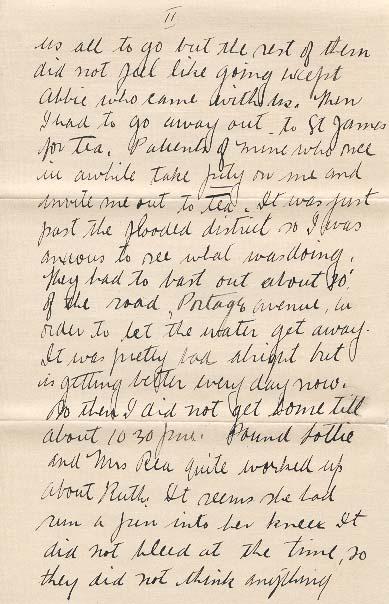 II
us all to go but the rest of them
did not feel like going except
Abbie who came with us. Then
I had to go away out to St James
for tea. Patients of mine who once
in awhile take pity on me and
invite me out to tea. It was just
past the flooded district so I was
anxious to see what was doing.
They had to bast out about 20'
of the road, Portage Avenue, in
order to let the water get away.
It was pretty bad alright but
is getting better every day now.
So then I did not get home till
about 10 30 p.m. Found Lottie
and Mrs Rea quite worked up
about Ruth. It seems she had
run a pin into her knee. It
did not bleed at the time, so
they did not think anything